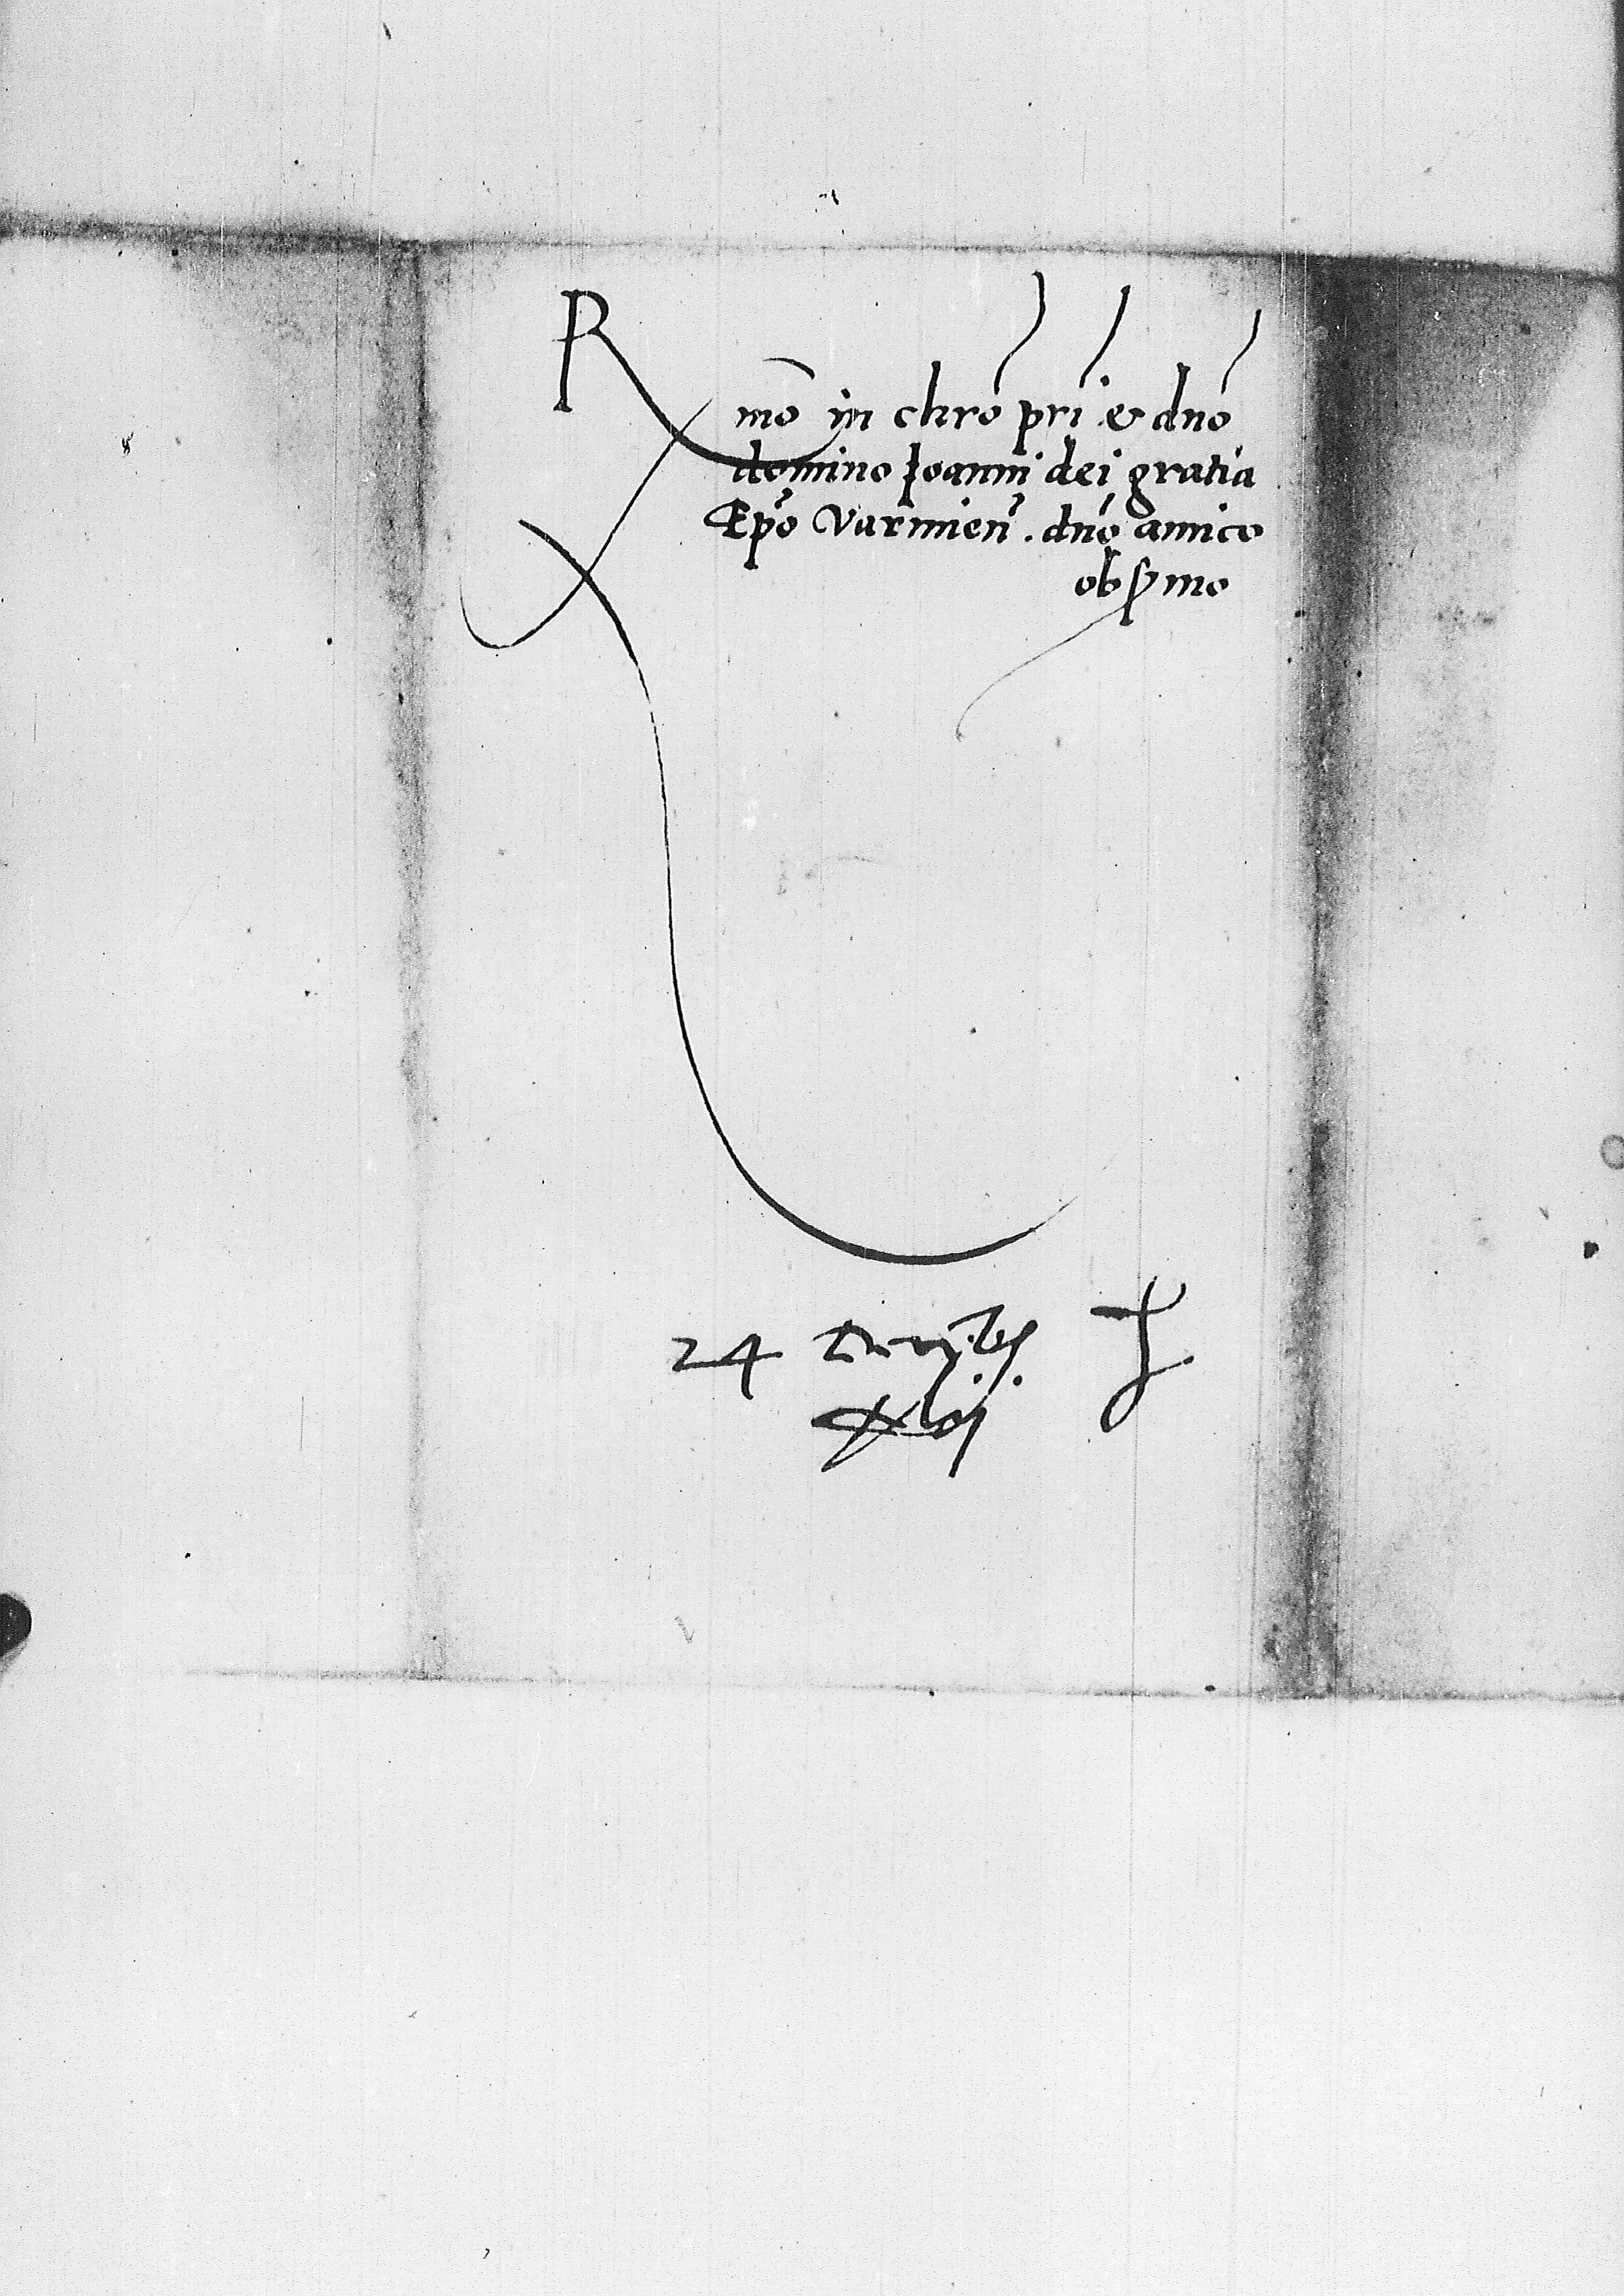 Rmo in chro pri et dno
domino Joanni dei gratia
Epo Varmien. dno amico
obsermo
24